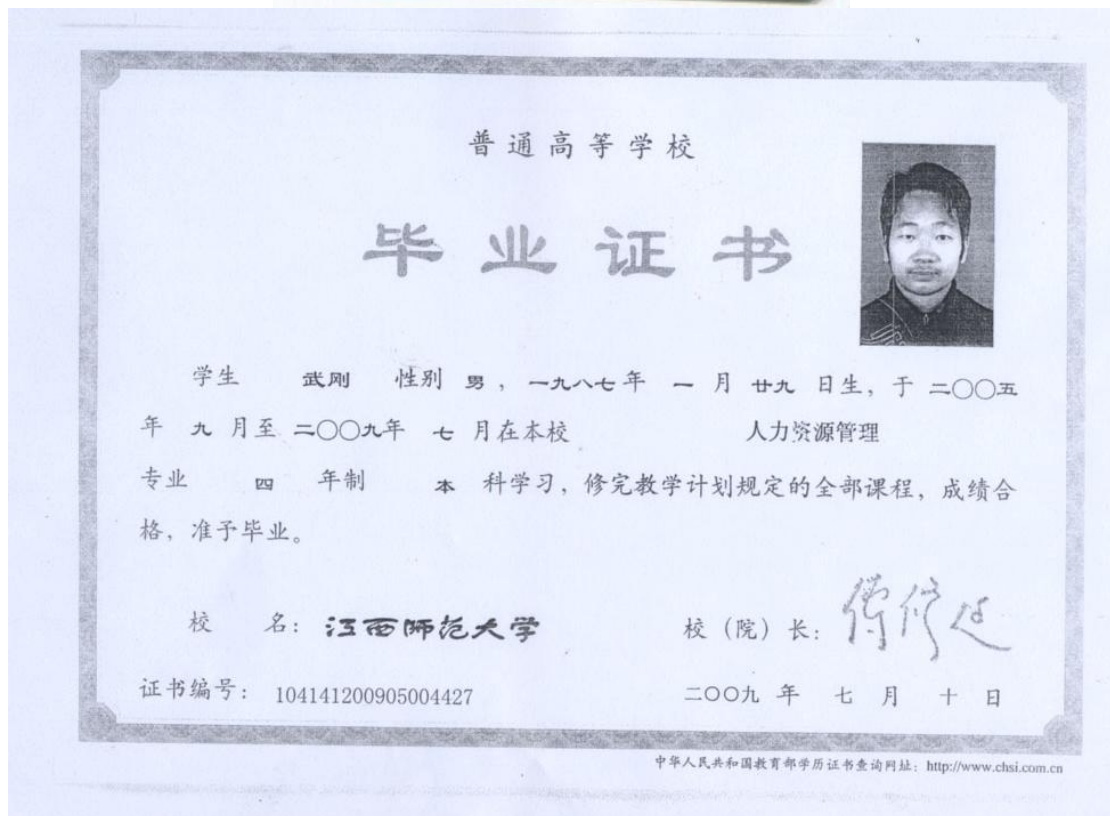 普通高等学校
毕业证书
学生 武刚 性别 男，一九八七年 一 月 廿九 日生，于 二〇〇五
年 九 月至 二〇〇九年 七 月在本校 人力资源管理
专业 四 年制 本 科学习，修完教学计划规定的全部课程，成绩合
格，准予毕业。
校 名：江西师范大学 校（院）长：
证书编号：104141200905004427 二〇〇九 年 七 月 十 日
中华人民共和国教育部学历证书查询网址：http://www.chsi.com.cn